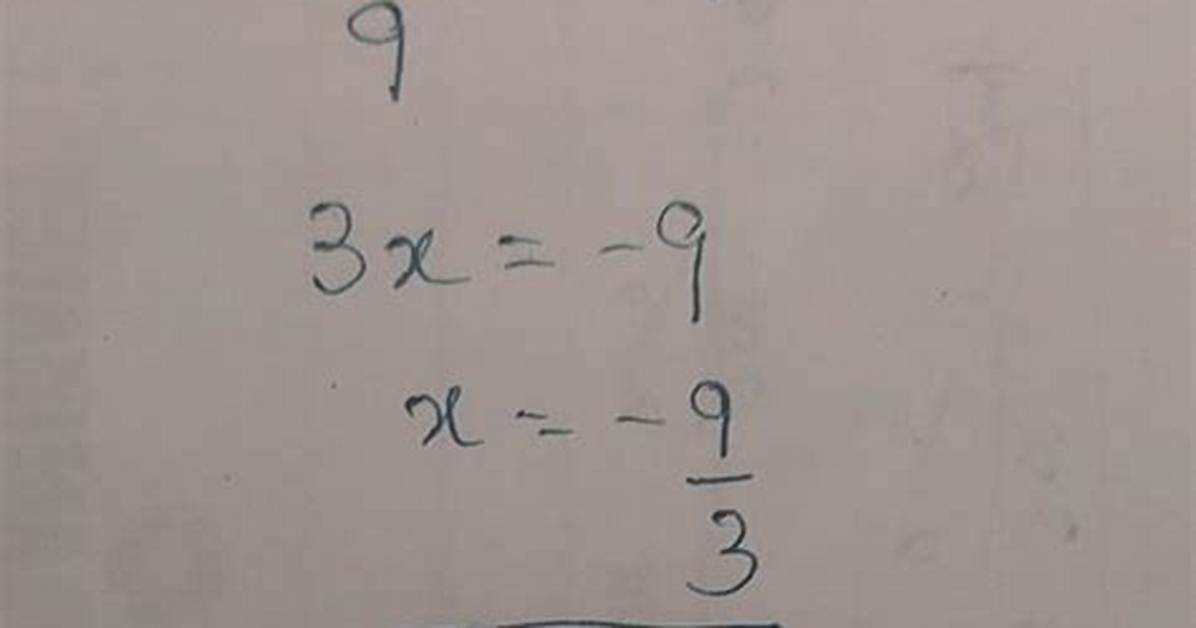 9
3x = -9
x = -9/3